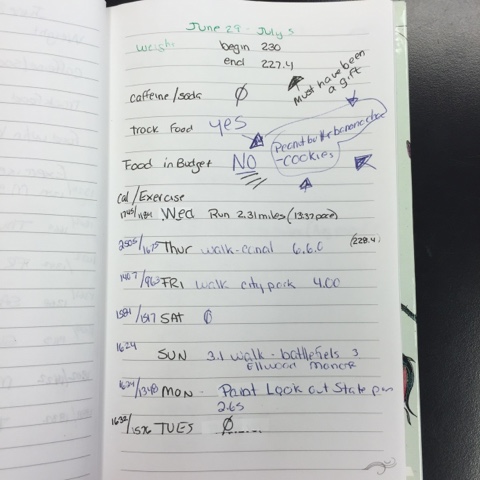 June 29 - July 5
weight begin 230
end 227.4
Must have been
a gift
caffeine/soda Ø
track food yes
Peanut butter banana choc
- cookies
Food in Budget NO
Cal/Exercise
Wed Run 2.31 miles (13:37 pace)
2505/1675 Thur walk-canal 6.60 (228.4)
1407/963 FRI walk city park 4.00
1584/1517 SAT Ø
1624
SUN 3.1 walk - battlefiels 3
Ellwood Manor
1624/1348 MON - Point Look out State
2.65
1632/1576 TUES Ø